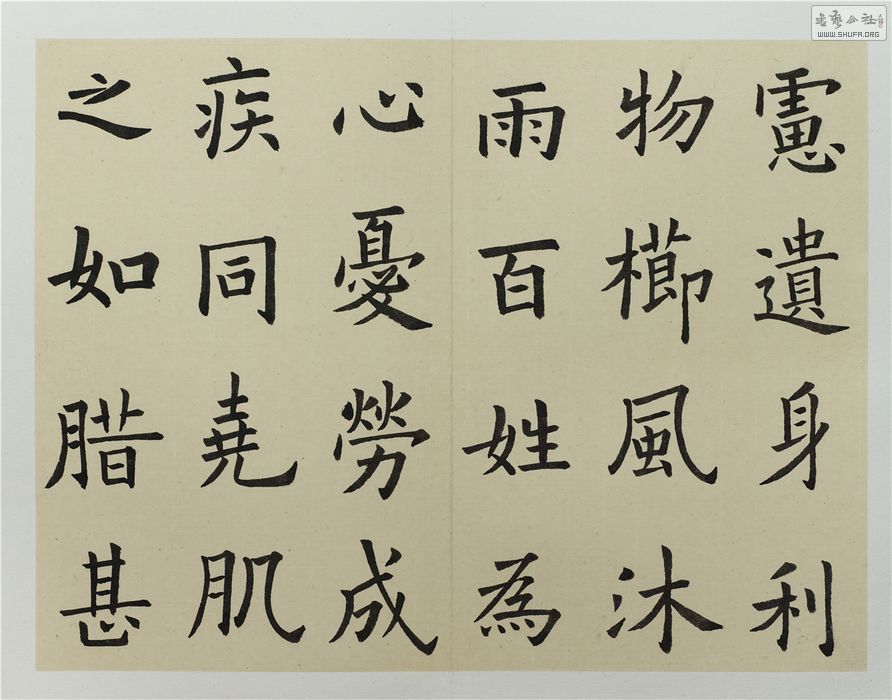 慮遺身利
物櫛風沐
雨百姓為
心憂勞成
疾同堯肌
之如腊甚
書藝公社
WWW.SHUFA.ORG